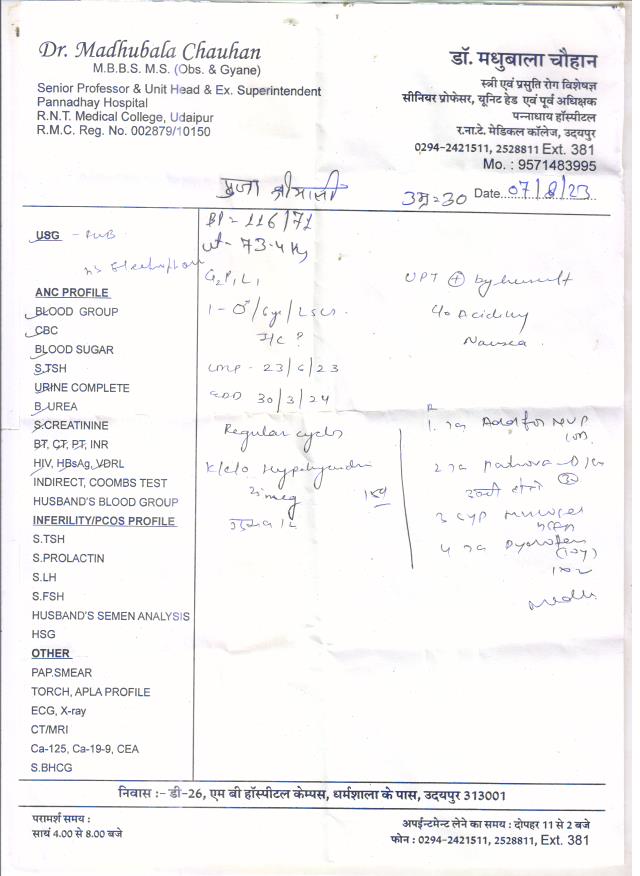 Dr. Madhubala Chauhan
M.B.B.S. M.S. (Obs. & Gyane)
Senior Professor & Unit Head & Ex. Superintendent
Pannadhay Hospital
R.N.T. Medical College, Udaipur
R.M.C. Reg. No. 002879/10150
डॉ. मधुबाला चौहान
स्त्री एवं प्रसुति रोग विशेषज्ञ
सीनियर प्रोफेसर, यूनिट हेड एवं पूर्व अधिक्षक
पन्नाधाय हॉस्पीटल
र.ना.टे. मेडिकल कॉलेज, उदयपुर
0294-2421511, 2528811 Ext. 381
Mo. : 9571483995
पुजा श्रीमाली
उम्र = 30 Date 07/8/23
USG
ANC PROFILE
BLOOD GROUP
CBC
BLOOD SUGAR
S.TSH
URINE COMPLETE
B.UREA
S.CREATININE
BT, CT, PT, INR
HIV, HBsAg, VDRL
INDIRECT, COOMBS TEST
HUSBAND'S BLOOD GROUP
INFERILITY/PCOS PROFILE
S.TSH
S.PROLACTIN
S.LH
S.FSH
HUSBAND'S SEMEN ANALYSIS
HSG
OTHER
PAP.SMEAR
TORCH, APLA PROFILE
ECG, X-ray
CT/MRI
Ca-125, Ca-19-9, CEA
S.BHCG
BP = 116/71
wt - 73.4 Kg
G2P1L1
I/C ?
LMP - 23/6/23
EDD 30/3/24
Regular cycles
UPT + by herself
c/o Acidity
Nausea
निवास :- डी-26, एम बी हॉस्पीटल केम्पस, धर्मशाला के पास, उदयपुर 313001
परामर्श समय :
सायं 4.00 से 8.00 बजे
अपईन्टमेन्ट लेने का समय : दोपहर 11 से 2 बजे
फोन : 0294-2421511, 2528811, Ext. 381